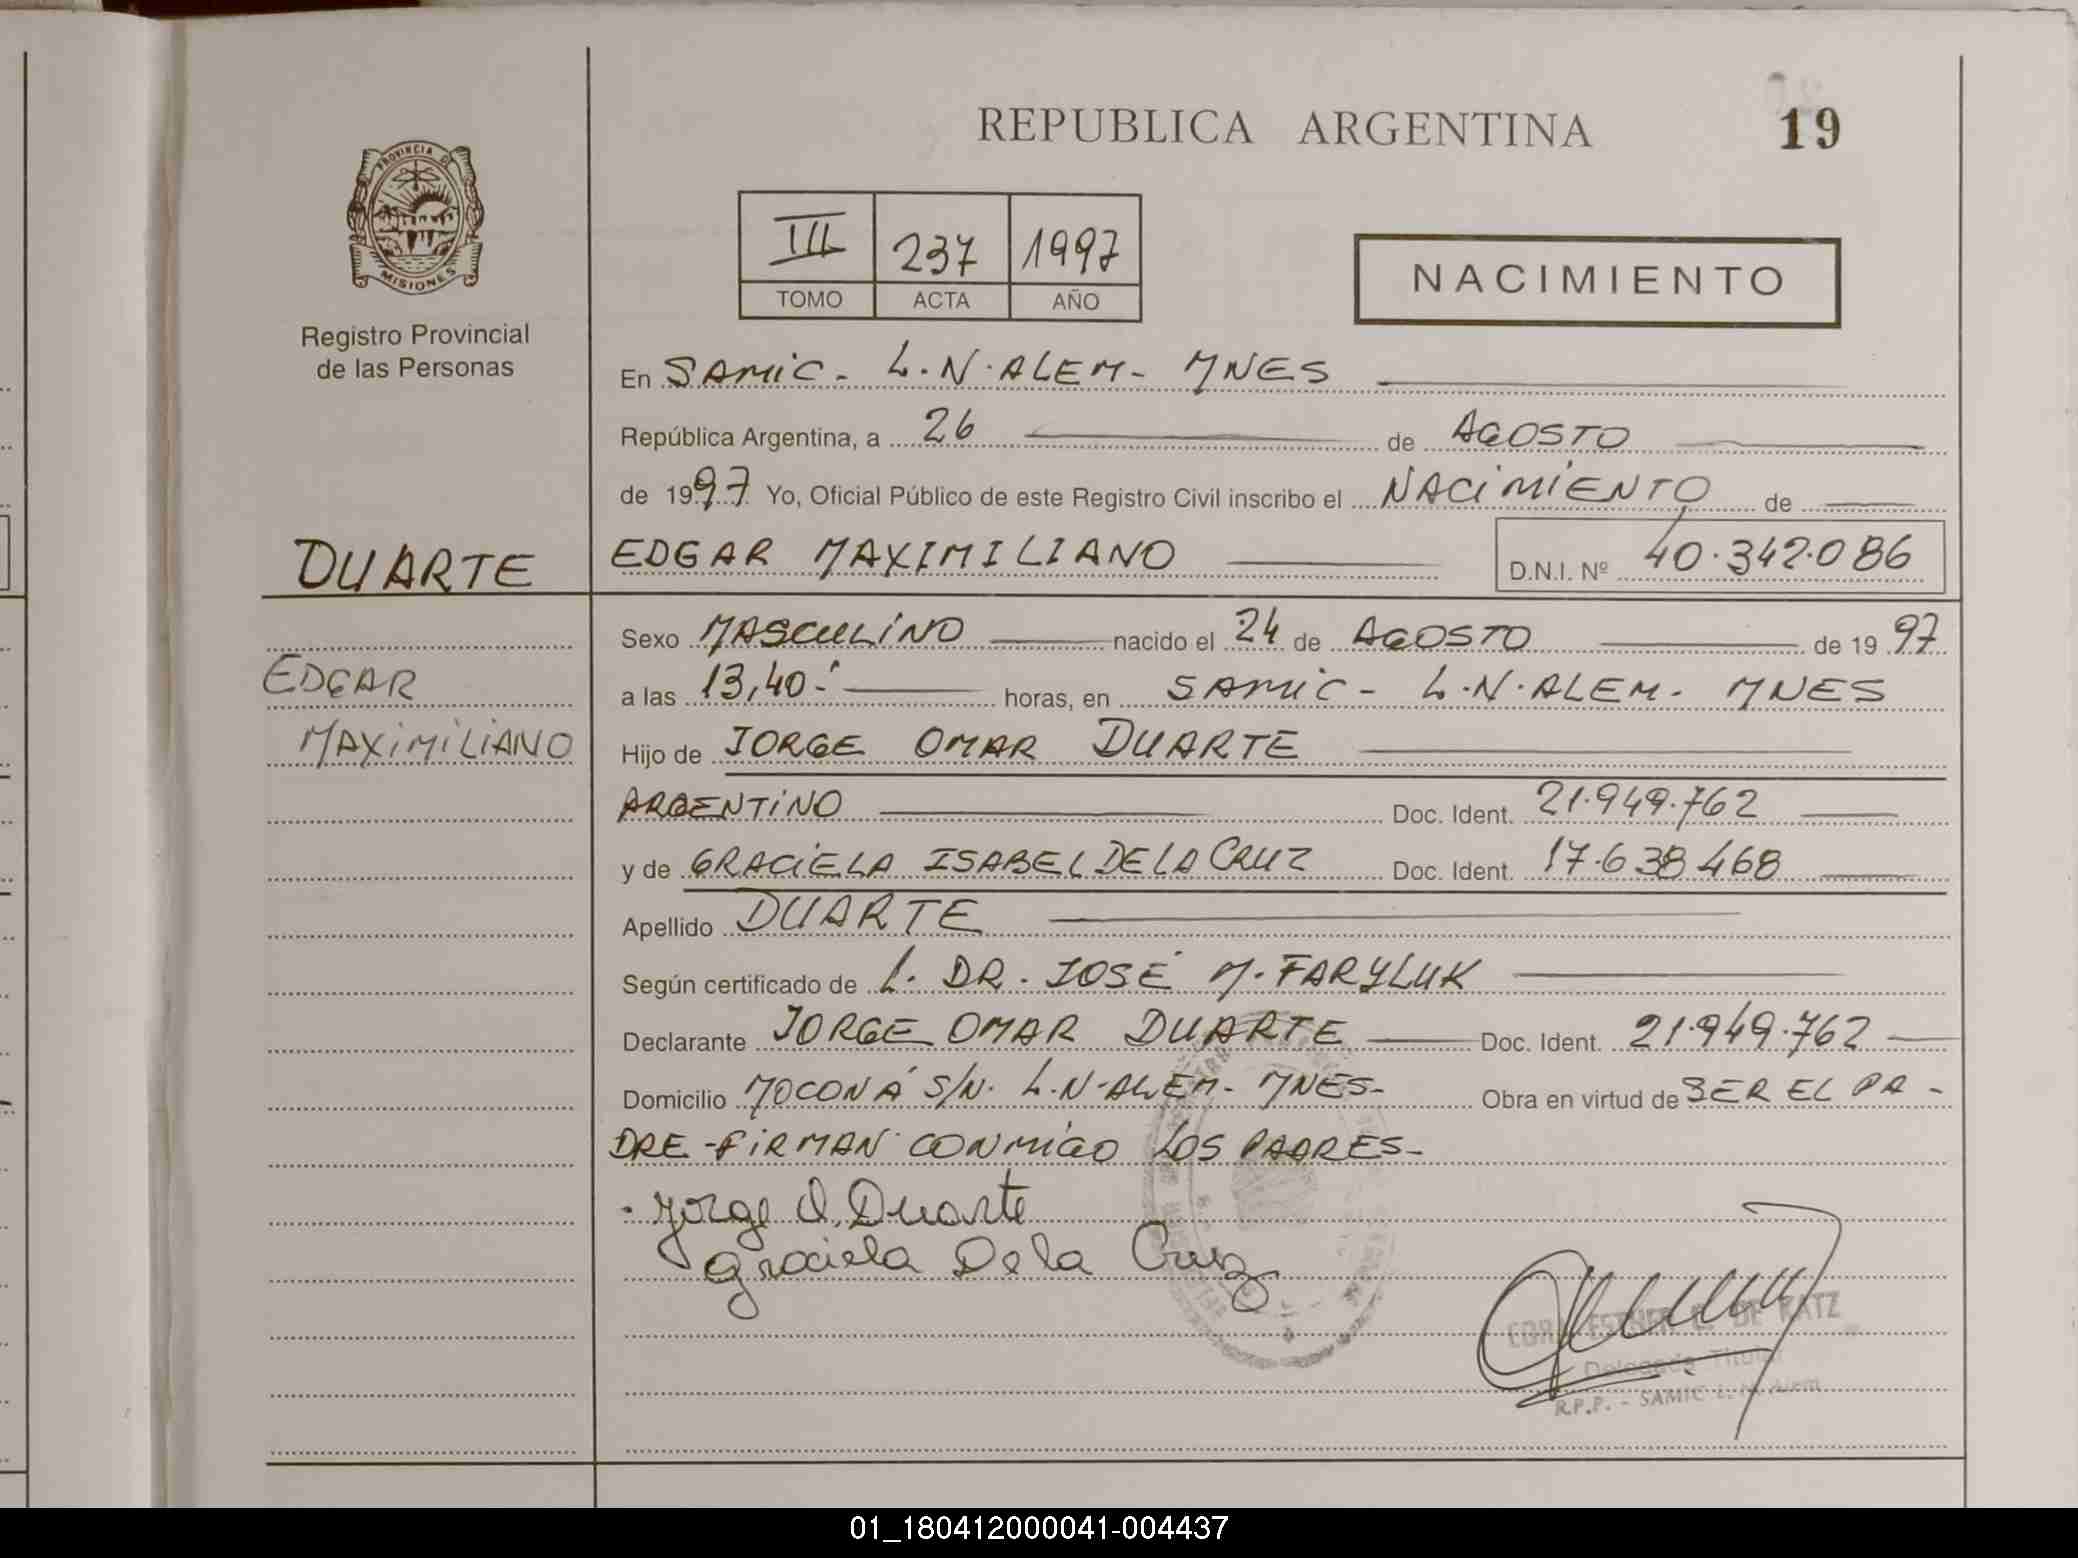 REPUBLICA ARGENTINA
19
PROVINCIA DE
MISIONES
Registro Provincial
de las Personas
III 237 1997
TOMO ACTA AÑO
NACIMIENTO
En SAMIC - L.N. ALEM - MNES
República Argentina, a 26 de AGOSTO
de 1997 Yo, Oficial Público de este Registro Civil inscribo el NACIMIENTO de
DUARTE
EDGAR MAXIMILIANO D.N.I. Nº 40.342.086
Sexo MASCULINO nacido el 24 de AGOSTO de 1997
EDGAR
a las 13,40.- horas, en SAMIC - L.N. ALEM - MNES
MAXIMILIANO
Hijo de JORGE OMAR DUARTE
ARGENTINO Doc. Ident. 21.949.762
y de GRACIELA ISABEL DE LA CRUZ Doc. Ident. 17.638468
Apellido DUARTE
Según certificado de L. DR. JOSÉ M. FARYLUK
Declarante JORGE OMAR DUARTE Doc. Ident. 21.949.762
Domicilio MOCONÁ S/N. L.N. ALEM - MNES - Obra en virtud de SER EL PA -
DRE - FIRMAN CONMIGO LOS PADRES -
Jorge O. Duarte
Graciela De la Cruz
ESTHER DE RATZ
Delegada Titular
R.P.P. - SAMIC L. N. Alem
01_180412000041-004437